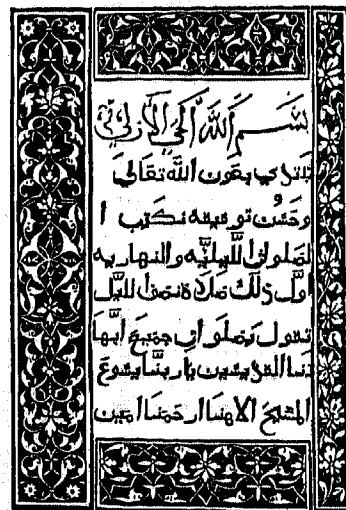 بِسَمِ اللهَ الحَيِّ الازلي
نبتدي بعون الله تعَالىَ
وحُسْن توفيقه نكتب ا
لصلوات الليليَّه والنهاريه
اولَّ ذلكَ صَلاة نصف الليَّل
تقول بصلوات جميع أبَّها
تنا القديسين يا ربنَّا يسَوعَ
المسَيحَ الاهنا ارحمنا امين